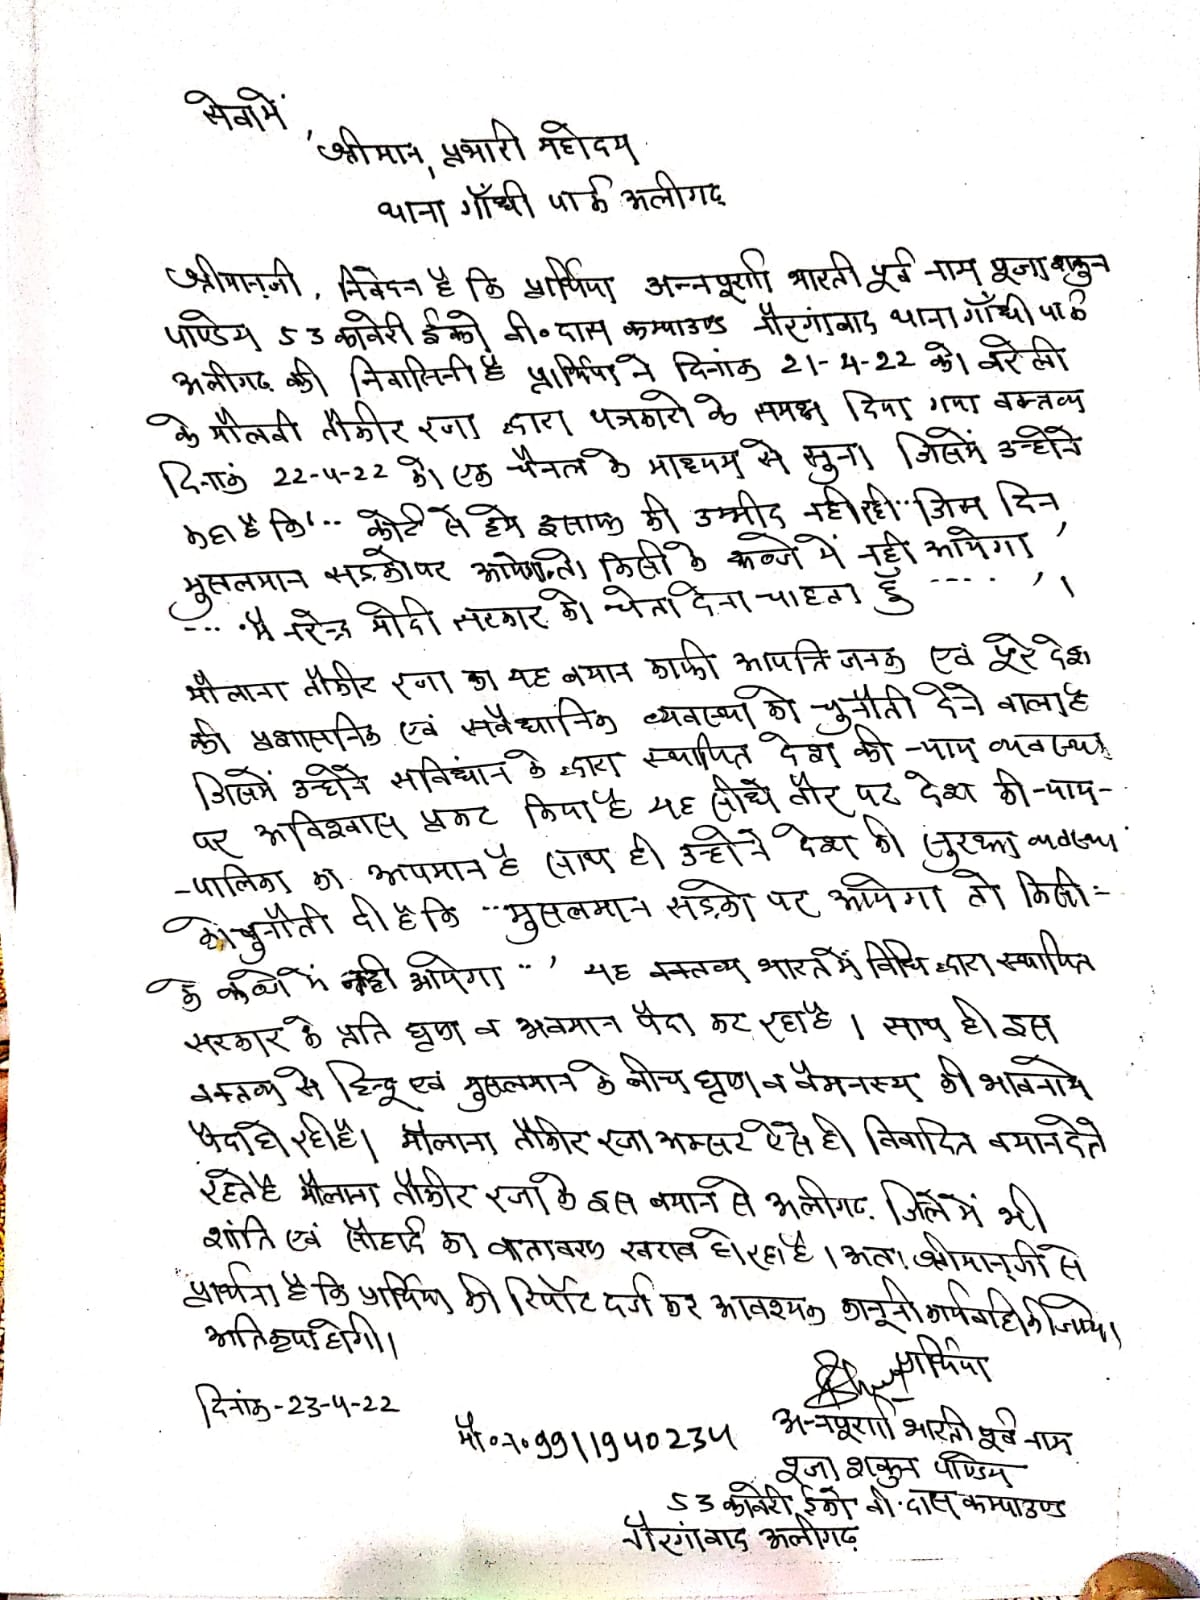 सेवामें,
श्रीमान, प्रभारी महोदय
थाना गाँधी पार्क अलीगढ़
श्रीमानजी, निवेदन है कि प्रार्थिया अन्नपूर्णा भारती पूर्व नाम पूजा शकुन
पाण्डेय 53 कावेरी ईको बी॰दास कम्पाउण्ड नौरंगाबाद थाना गाँधी पार्क
अलीगढ़ की निवासिनी है प्रार्थिया ने दिनांक 21-4-22 को बरेली
के मौलवी तौकीर रजा द्वारा पत्रकारो के समक्ष दिया गया वक्तव्य
दिनांक 22-4-22 को एक चैनल के माध्यम से सुना जिसमें उन्होंने
कहा है कि '.. कोर्ट से हमे इंसाफ की उम्मीद नही रही.. जिस दिन
मुसलमान सड़को पर आयेगा तो किसी के कब्जे में नही आयेगा '
---. मै नरेन्द्र मोदी सरकार को चेता देना चाहता हूँ ----- '।
मौलाना तौकीर रजा का यह बयान काफी आपत्तिजनक एवं पूरे देश
की प्रशासनिक एवं सवैधानिक व्यवस्था को चुनौती देने वाला है
जिसमें उन्होंने सविधान के द्वारा स्थापित देश की न्याय व्यवस्था
पर अविश्वास प्रकट किया है यह सीधे तौर पर देश की न्याय-
-पालिका का अपमान है साथ ही उन्होंने देश की सुरक्षा व्यवस्था
को चुनौती दी है कि ..मुसलमान सड़को पर आयेगा तो किसी-
के कब्जे में नही आयेगा ..' यह वक्तव्य भारत में विधि द्वारा स्थापित
सरकार के प्रति घृणा व अवमान पैदा कर रहा है । साथ ही इस
वक्तव्य से हिन्दू एवं मुसलमान के बीच घृणा व वैमनस्य की भावनाये
पैदा हो रही है। मौलाना तौकीर रजा अक्सर ऐसे ही विवादित बयान देते
रहते है मौलाना तौकीर रजा के इस बयान से अलीगढ़ जिले में भी
शांति एवं सौहार्द का वातावरण खराब हो रहा है । अतः श्रीमानजी से
प्रार्थना है कि प्रार्थिया की रिपोर्ट दर्ज कर आवश्यक कानूनी कार्यवाहि की जाये।
अति कृपा होगी।
प्रार्थिया
दिनांक-23-4-22
मो॰न॰9911940234 अन्नपूर्णा भारती पूर्व नाम
पूजा शकुन पाण्डेय
53 कावेरी ईको बी॰दास कम्पाउण्ड
नौरंगाबाद अलीगढ़